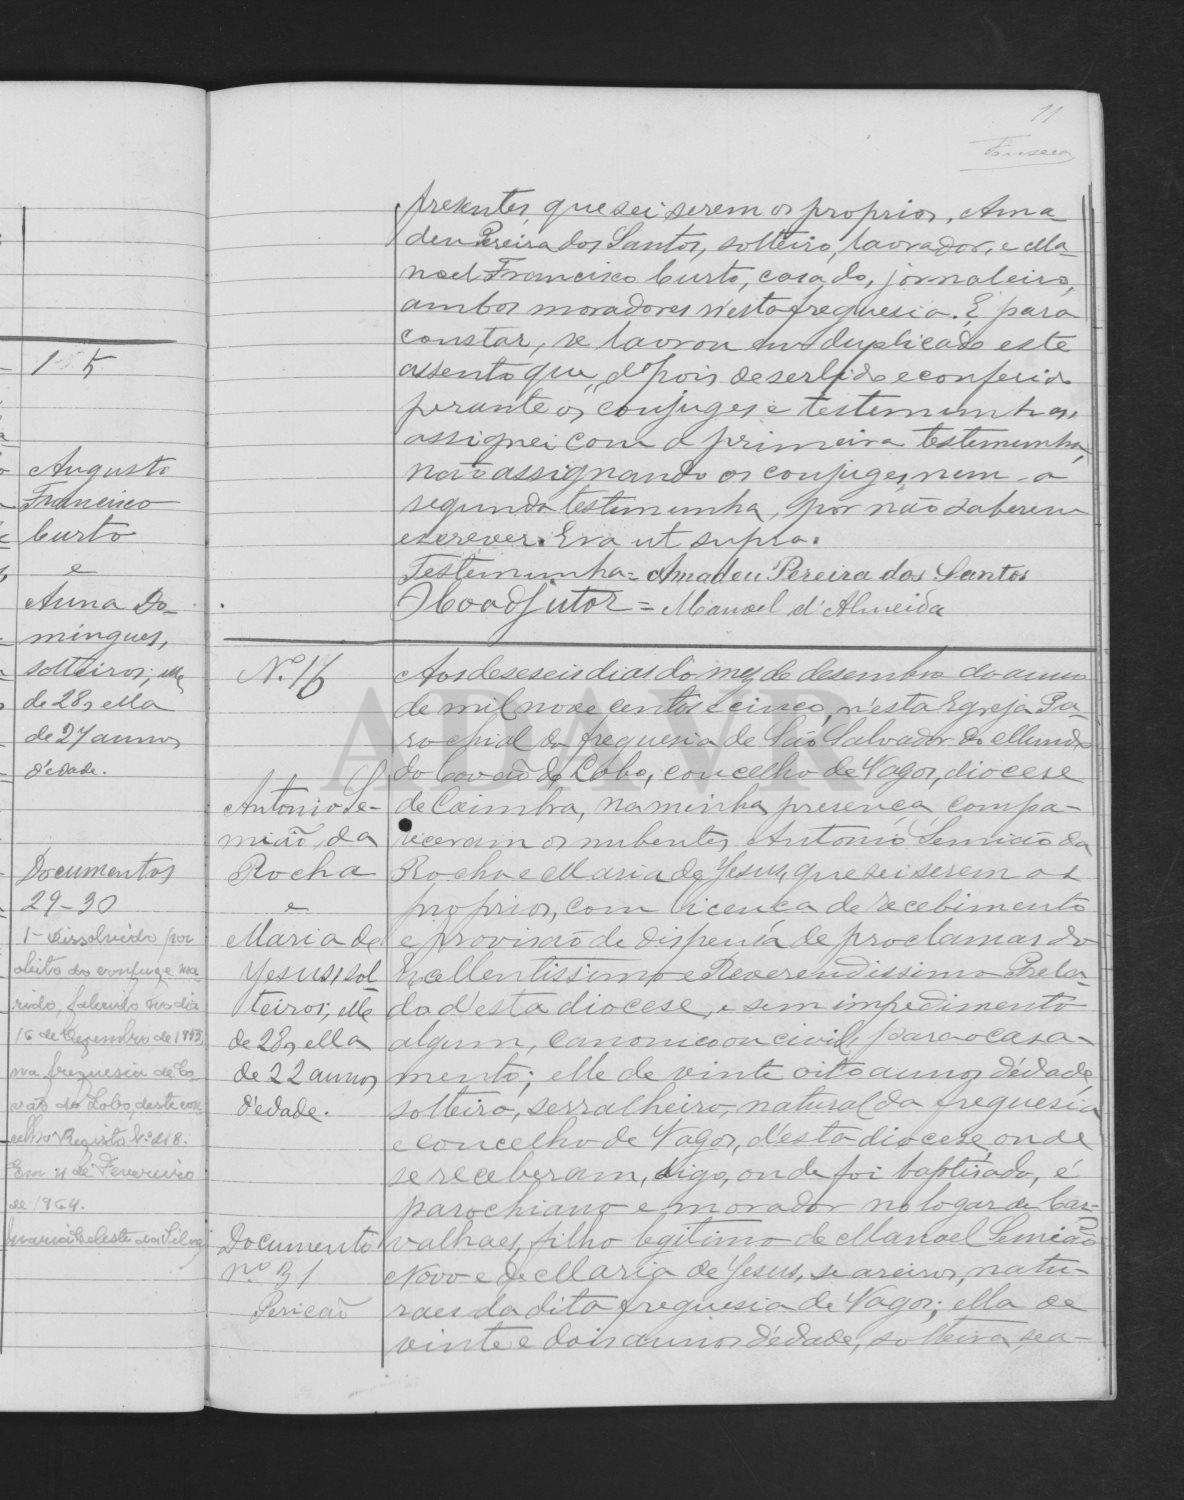 11
Fonseca
15
Augusto
Francisco
Curto
e
Anna Do-
mingues,
solteiros; elle
de 28, ella
de 27 annos
d'edade.
Documentos
29-30
1- Dissolvido por
obito do conjuge ma-
rido, falecido no dia
16 de Dezembro de 1953,
na freguesia de Co-
vão do Lobo, deste con-
celho Registo Nº 218.
Em 4 de Fevereiro
de 1964.
Maria Celeste da Silva
presentes, que sei serem os proprios, Ama
deu Pereira dos Santos, solteiro, lavrador, e Ma-
noel Francisco Curto, casado, jornaleiro,
ambos moradores n'esta freguesia. E para
constar, se lavrou em duplicado este
assento que, depois de ser lido e conferido
perante os conjuges e testemunhas,
assignei com a primeira testemunha,
não assignando os conjuges, nem a
segunda testemunha, por não saberem
escrever. Era ut supra.
Testemunha = Amadeu Pereira dos Santos
O Coadjutor = Manoel d'Almeida
N.º 16
Antonio Se-
mião da
Rocha
e
Maria de
Jesus, sol-
teiros; elle
de 28, ella
de 22 annos
d'edade.
Documento
n.º 31
Aos deseseis dias do mez de desembro do anno
de mil nove centos e cinco, n'esta Egreja Pa-
rochial da freguesia de São Salvador do Mundo
do Covão do Lobo, concelho de Vagos, diocese
de Coimbra, na minha presença, compa-
receram os nubentes Antonio Semião da
Rocha e Maria de Jesus, que sei serem os
proprios, com licença de recebimento
e provisão de dispensa de proclamas do
Excellentissimo e Reverendissimo Prela-
do d'esta diocese, e sem impedimento
algum, canonico ou civil, para o casa-
mento; elle de vinte oito annos d'edade,
solteiro, serralheiro, natural da freguesia
e concelho de Vagos, d'esta diocese, onde
se receberam, digo, onde foi baptisado, é
parochiano e morador no logar de Car-
valhaes, filho legitimo de Manoel Semião
Novo e de Maria de Jesus, seareiros, natu-
raes da dita freguesia de Vagos; ella de
vinte e dois annos d'edade, solteira, sea-
ADAVR